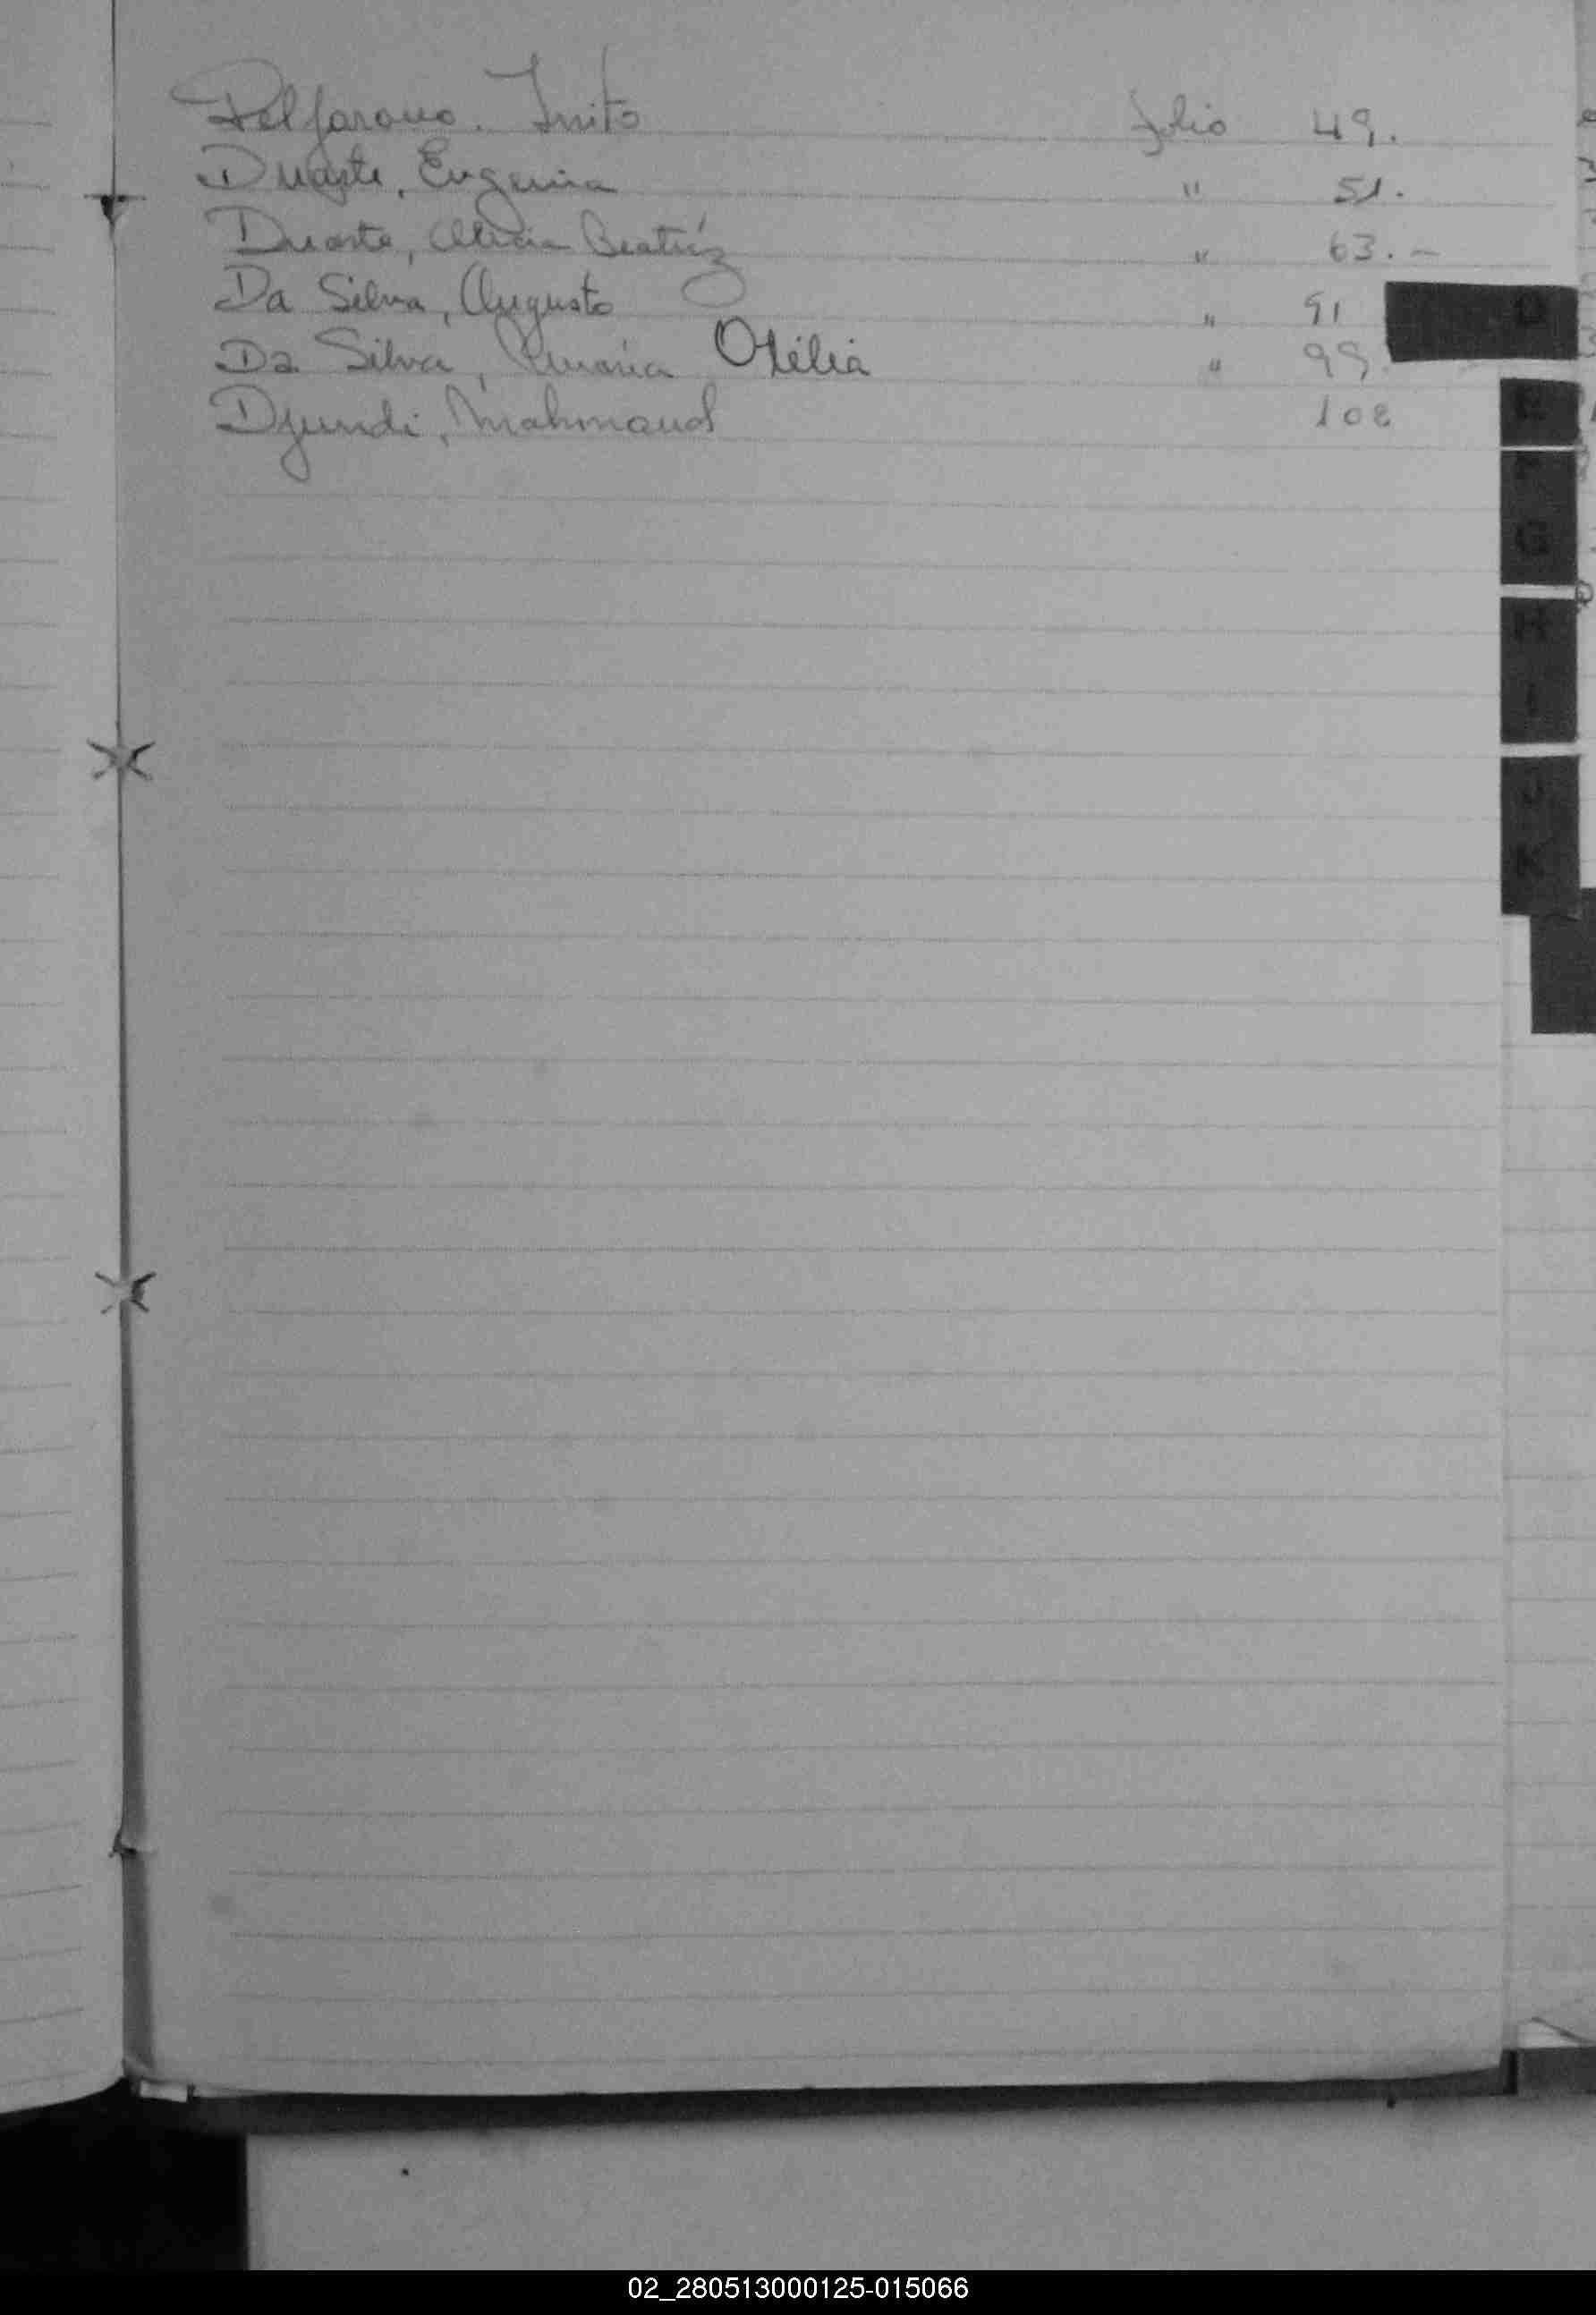 Delfarono. Inito folio 49.
Duarte, Eugenia " 51.
Duarte, Alicia Beatríz " 63. -
Da Silva, Augusto " 91
Da Silva, María Otilia " 99.
Djundi, Mahmoud 108
D
E
F
G
H
I
J
K
02_280513000125-015066